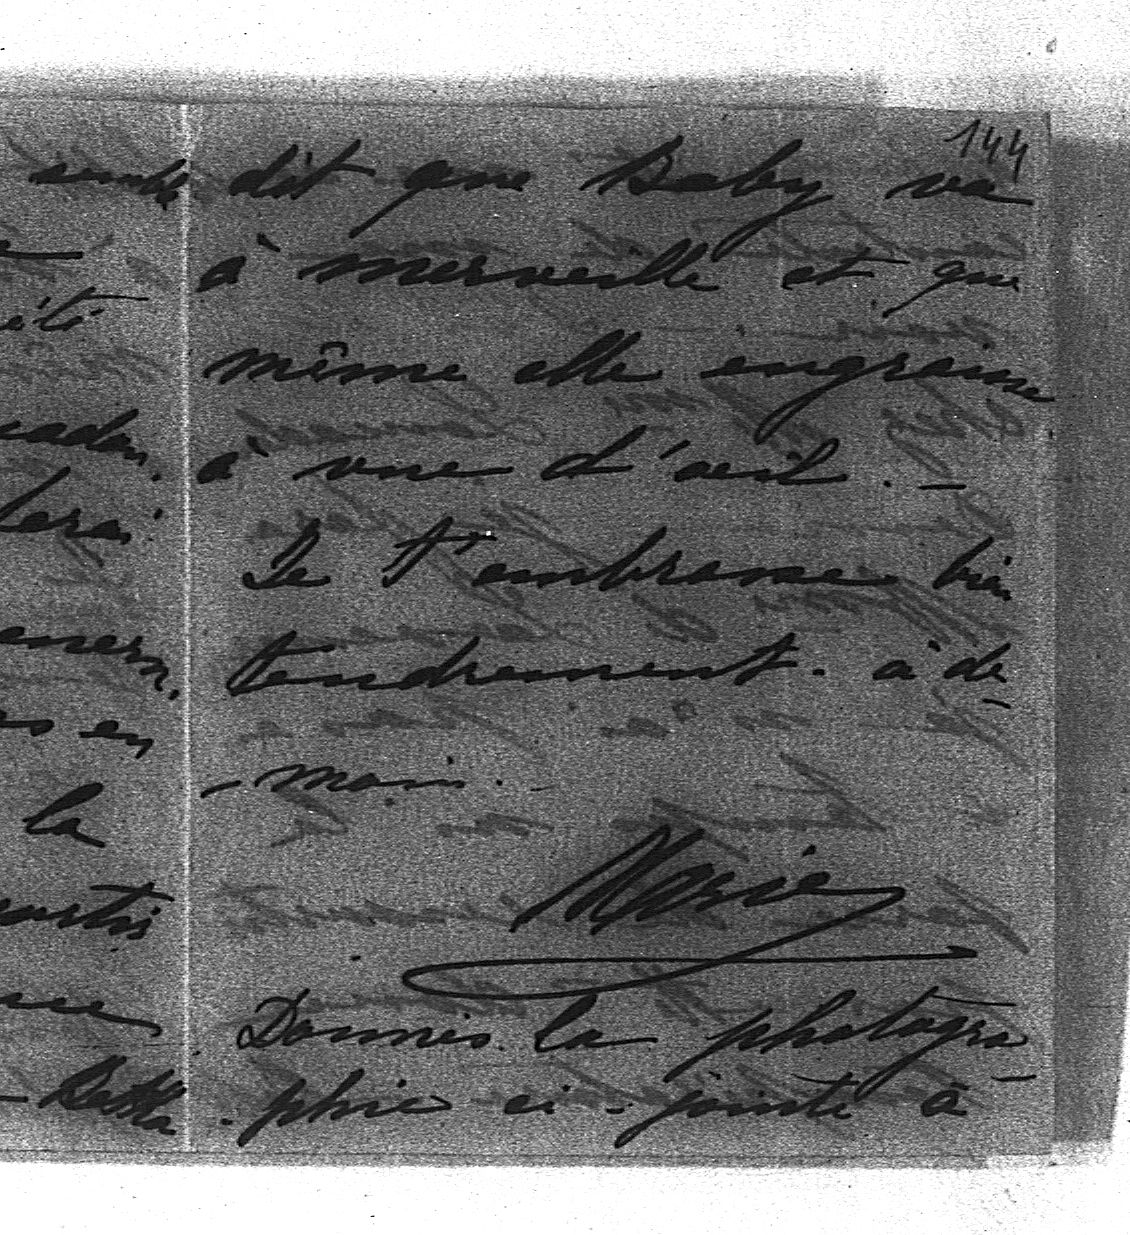 144
été
la
dit que Baby va
à merveille et que
même elle engraisse
à vue d'œil. —
Je t'embrasse bien
tendrement. à de
- main. -
Marie
Donnes la photogra
- phie ci-jointe à